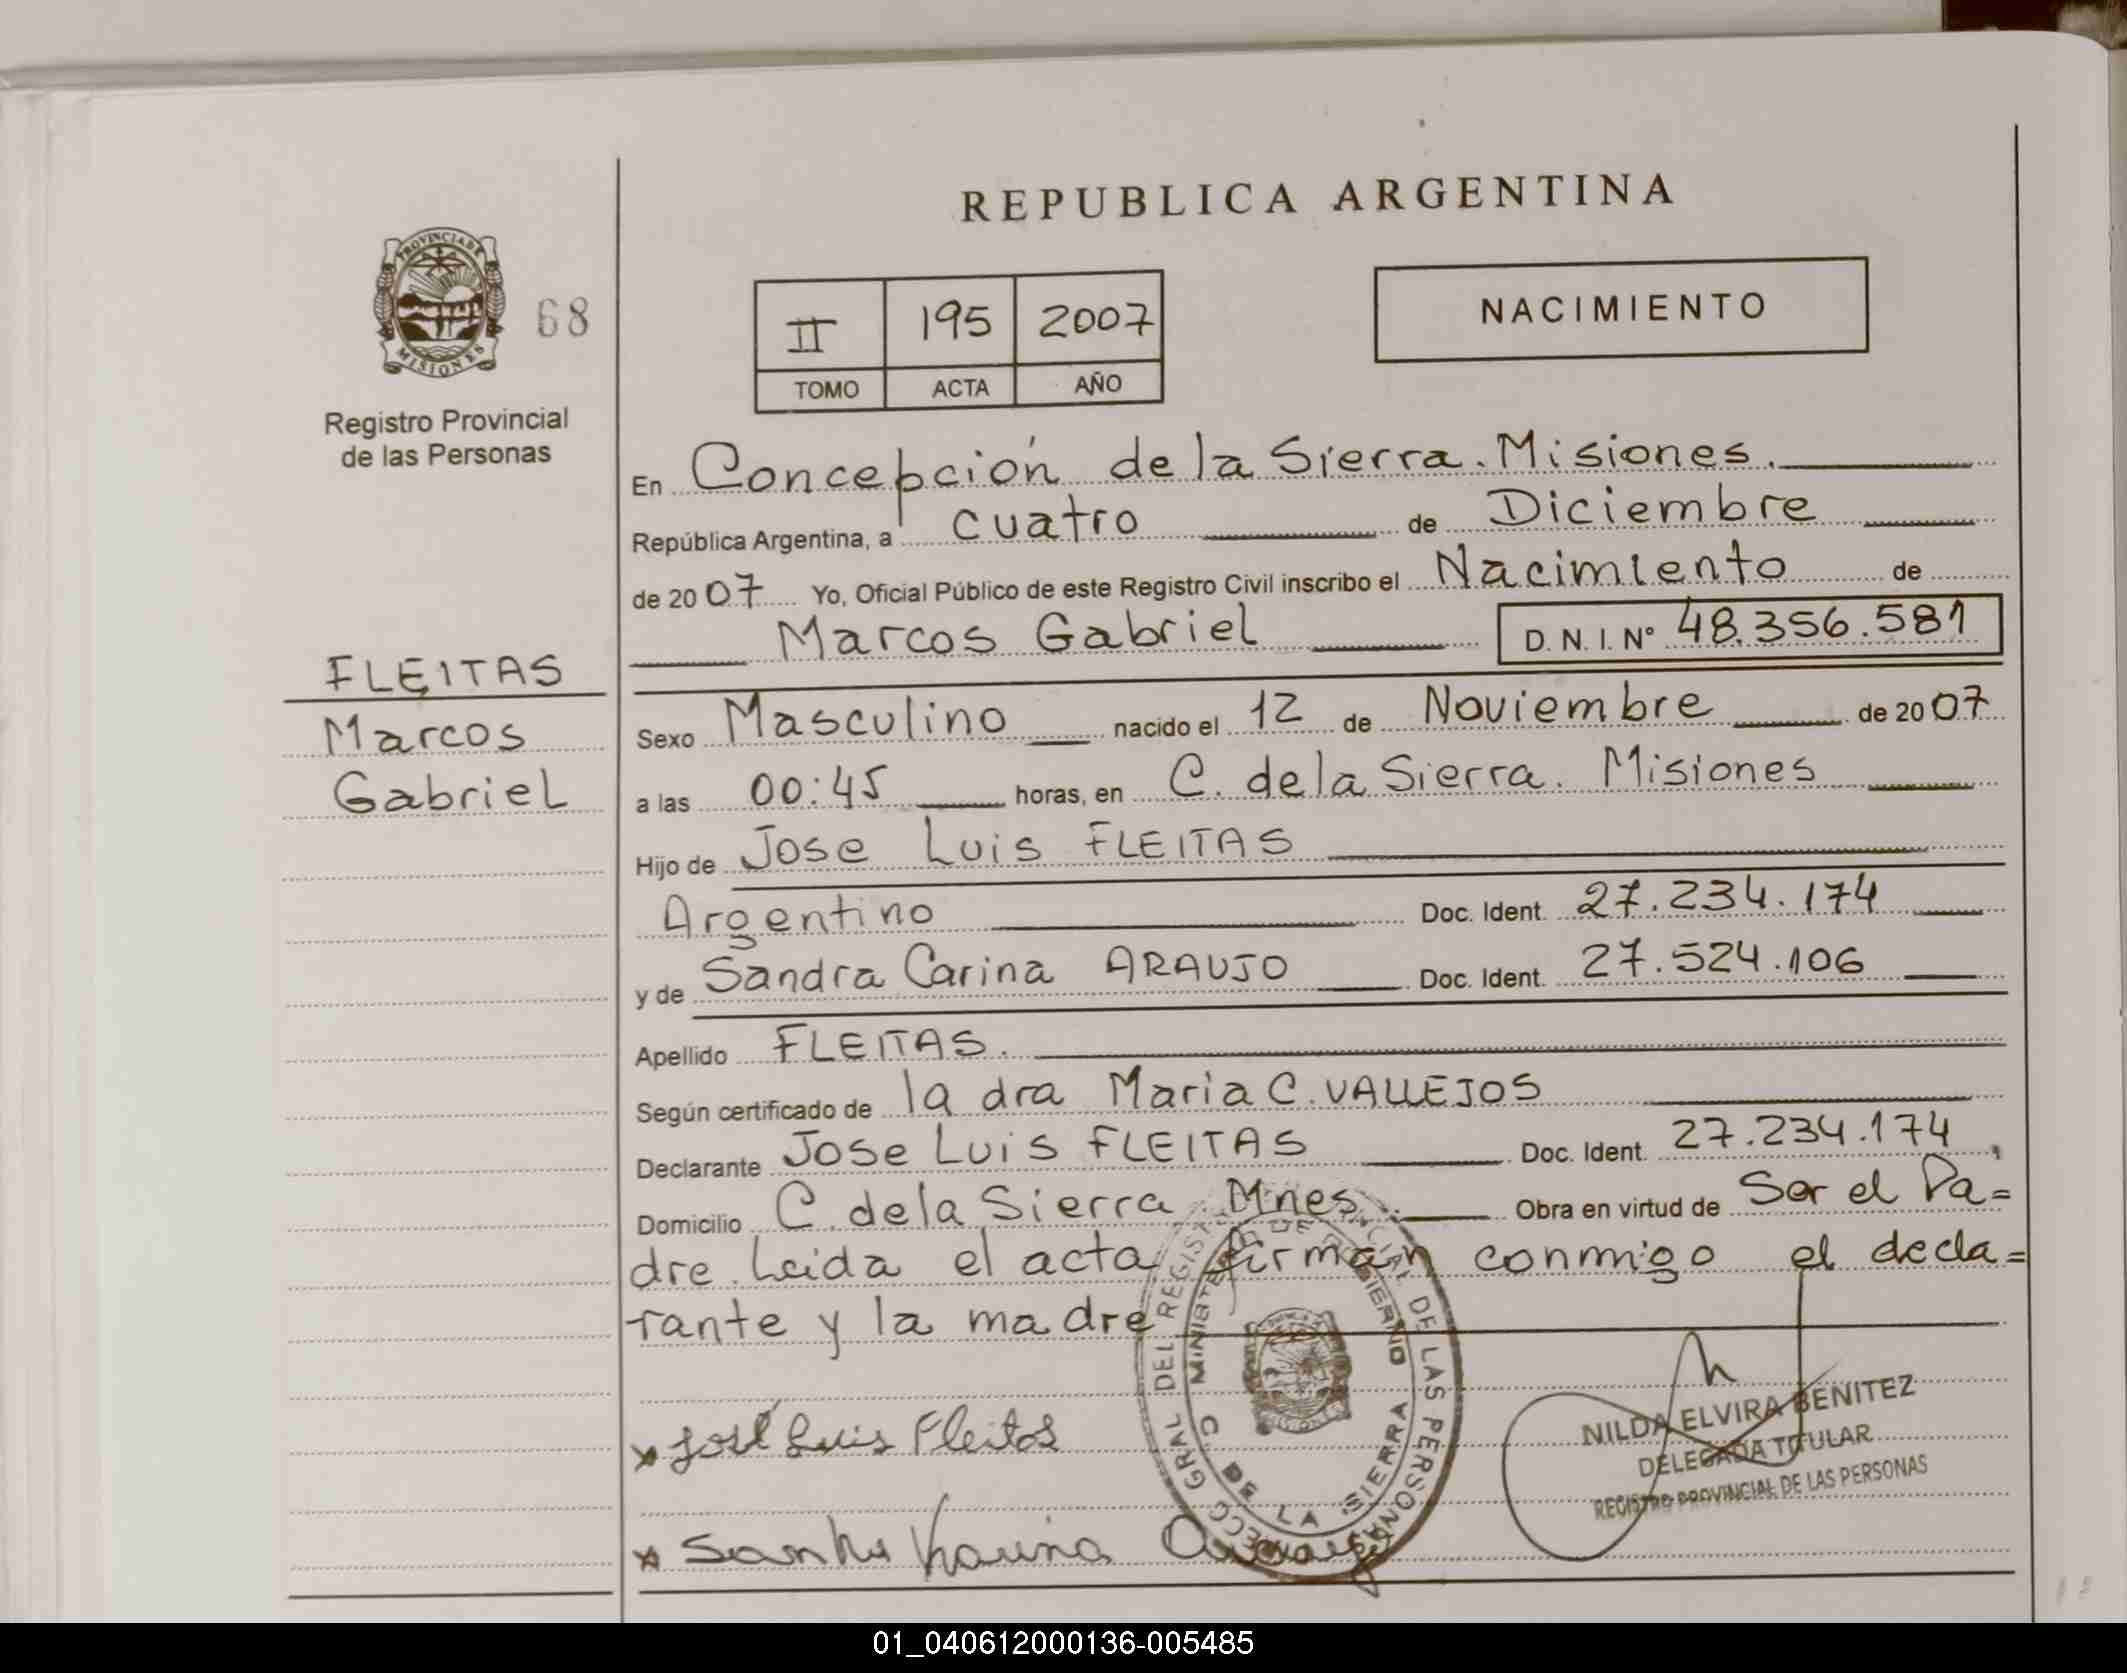 REPUBLICA ARGENTINA
PROVINCIA DE
MISIONES
68
Registro Provincial
de las Personas
II 195 2007
TOMO ACTA AÑO
NACIMIENTO
En Concepción de la Sierra. Misiones.
República Argentina, a cuatro de Diciembre
de 2007 Yo, Oficial Público de este Registro Civil inscribo el Nacimiento de
Marcos Gabriel D.N.I. Nº 48.356.581
FLEITAS
Marcos
Gabriel
Sexo Masculino nacido el 12 de Noviembre de 2007
a las 00:45 horas, en C. de la Sierra. Misiones
Hijo de Jose Luis FLEITAS
Argentino Doc. Ident. 27.234.174
y de Sandra Carina ARAUJO Doc. Ident. 27.524.106
Apellido FLEITAS.
Según certificado de la dra Maria C. VALLEJOS
Declarante Jose Luis FLEITAS Doc. Ident. 27.234.174,
Domicilio C. de la Sierra Mnes. Obra en virtud de Ser el Pa=
dre. Leida el acta firman conmigo el decla=
rante y la madre
x José Luis Fleitas
x Karina
NILDA ELVIRA BENITEZ
DELEGADA TITULAR
REGISTRO PROVINCIAL DE LAS PERSONAS
GRAL DEL REGIST CIAL DE LAS PERSONAS
C. DE LA SIERRA
01_040612000136-005485